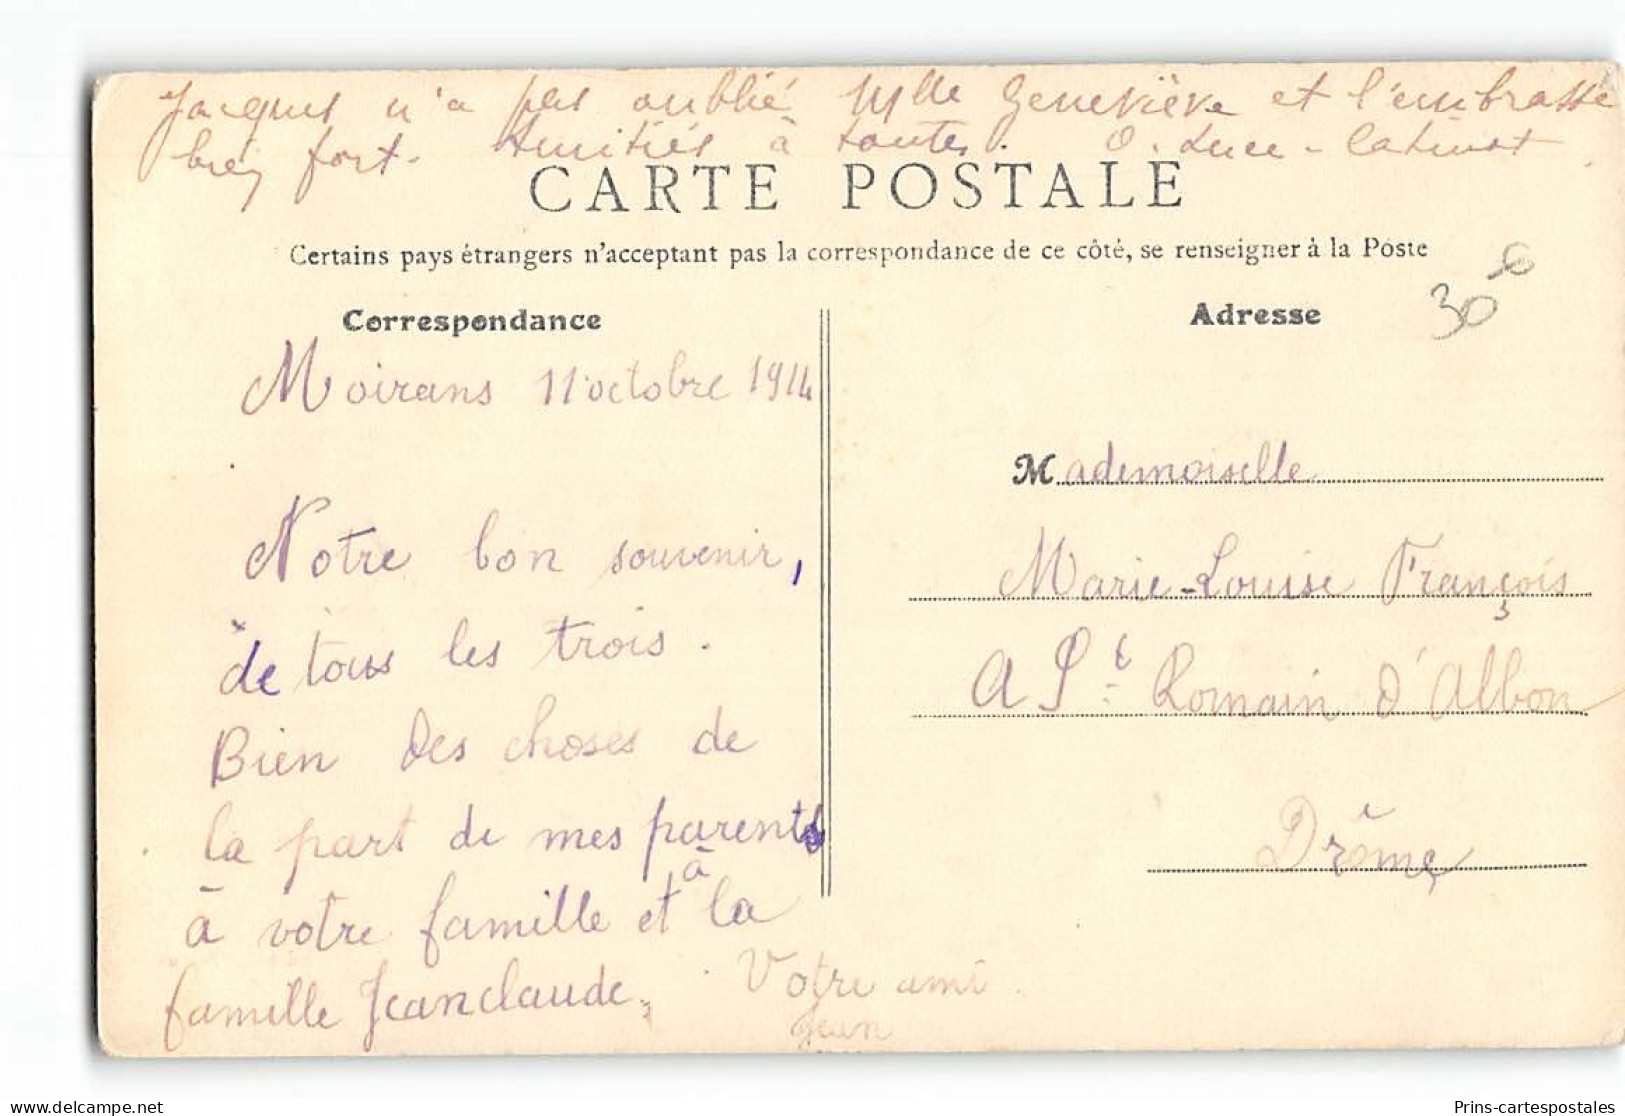 Jacques n'a pas oublié Mlle Geneviève et l'embrasse
bien fort. Amitiés à toutes. O. Luce - Catinot
CARTE POSTALE
Certains pays étrangers n'acceptant pas la correspondance de ce côté, se renseigner à la Poste
Correspondance
Moirans 11 octobre 1914
Notre bon souvenir,
de tous les trois.
Bien des choses de
la part de mes parents
à votre famille et à la
famille Jeanclaude.
Votre ami
Jean
Adresse
30
Mademoiselle
Marie-Louise François
A St Romain d'Albon
Drôme
delcampe.net
Prins-cartespostales